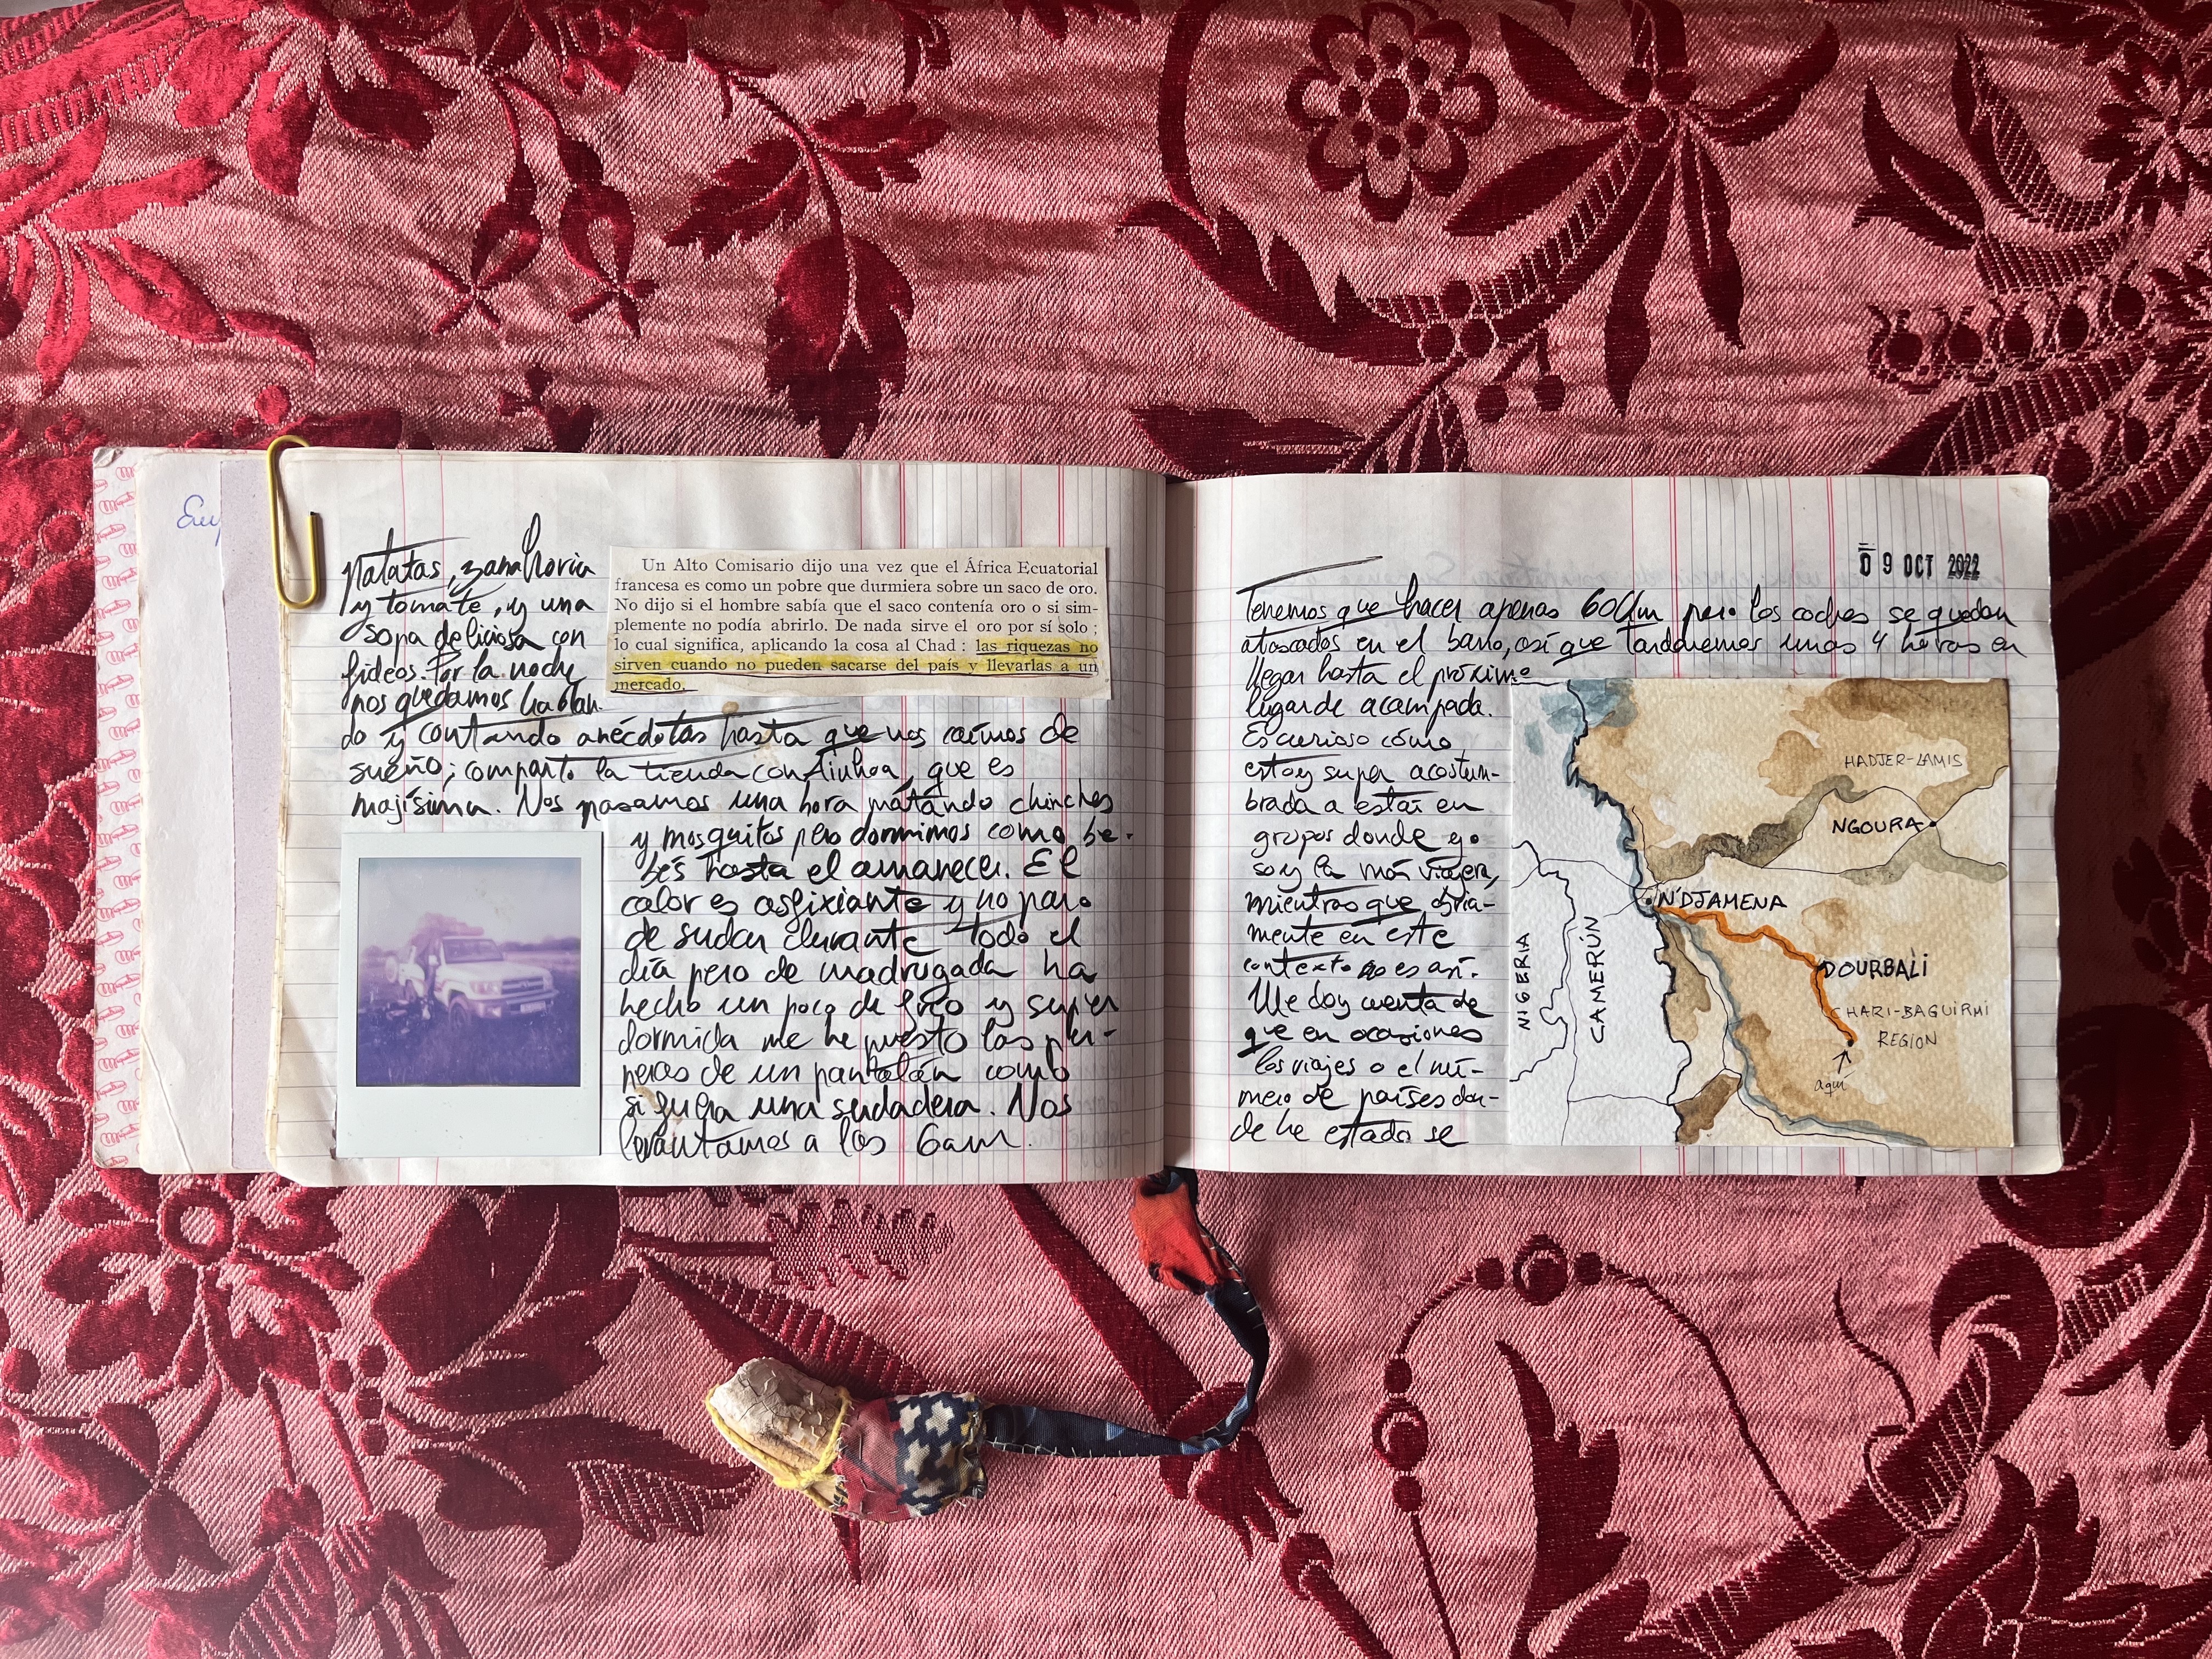 Eu
patatas, zanahoria
y tomate, y una
sopa deliciosa con
fideos. Por la noche
nos quedamos hablan-
do y contando anécdotas hasta que nos caímos de
sueño; comparto la tienda con Ainhoa, que es
majísima. Nos pasamos una hora matando chinches
y mosquitos pero dormimos como be-
bés hasta el amanecer. El
calor es asfixiante y no paro
de sudar durante todo el
día pero de madrugada ha
hecho un poco de frío y super
dormida me he puesto las per-
neras de un pantalón como
si fuera una sudadera. Nos
levantamos a las 6am.
Un Alto Comisario dijo una vez que el África Ecuatorial
francesa es como un pobre que durmiera sobre un saco de oro.
No dijo si el hombre sabía que el saco contenía oro o si sim-
plemente no podía abrirlo. De nada sirve el oro por sí solo;
lo cual significa, aplicando la cosa al Chad: las riquezas no
sirven cuando no pueden sacarse del país y llevarlas a un
mercado.
09 OCT 2022
Tenemos que hacer apenas 60km pero los coches se quedan
atascados en el barro, así que tardaremos unas 4 horas en
llegar hasta el próximo
lugar de acampada.
Es curioso cómo
estoy super acostum-
brada a estar en
grupos donde yo
soy la más viajera,
mientras que obvia-
mente en este
contexto no es así.
Me doy cuenta de
que en ocasiones
los viajes o el nú-
mero de países don-
de he estado se
HADJER-LAMIS
NGOURA
N'DJAMENA
NIGERIA
CAMERÚN
DOURBALI
CHARI-BAGUIRMI
REGION
aquí